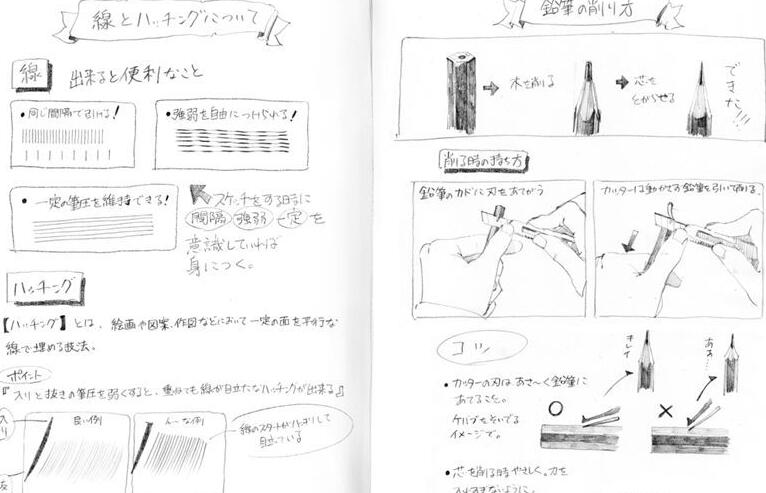 線とハッチングについて
線 出来ると便利なこと
・同じ間隔で引ける!
・強弱を自由につけられる!
・一定の筆圧を維持できる!
スケッチをする時に
間隔 強弱 一定を
意識していれば
身につく。
ハッチング
【ハッチング】とは、絵画や図案、作図などにおいて一定の面を平行な
線で埋める技法。
ポイント
『入りと抜きの筆圧を弱くすると、重ねても線が目立たなハッチが出来る』
入り
良い例
んーな例
線のスタートがハッキリして
目立っている
鉛筆の削り方
木を削る
芯を
とがらせる
できた!!!
削る時の持ち方
鉛筆のカドに刃をあてがう
カッターは動かさず鉛筆を引いて削る。
コツ
・カッターの刃はあさ〜く鉛筆に
あてること。
ケバブをそいでる
イメージで。
キレイ
あぁ…
・芯を削る時やさしく。刀を
入れすぎないように。